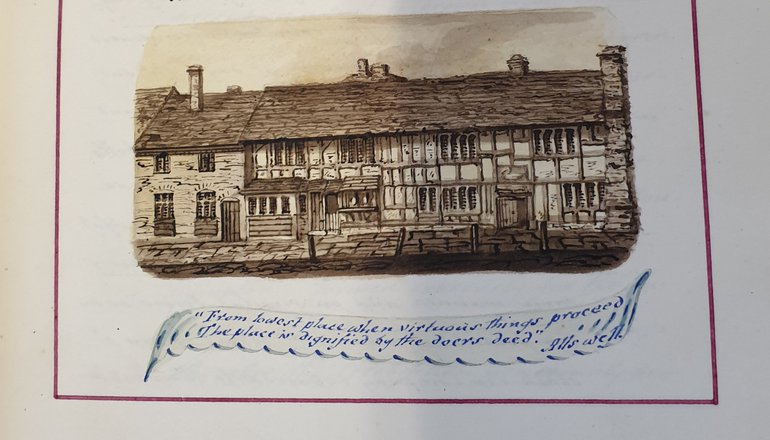 "From lowest place when virtuous things proceed
The place is dignified by the doers deed." Alls well.